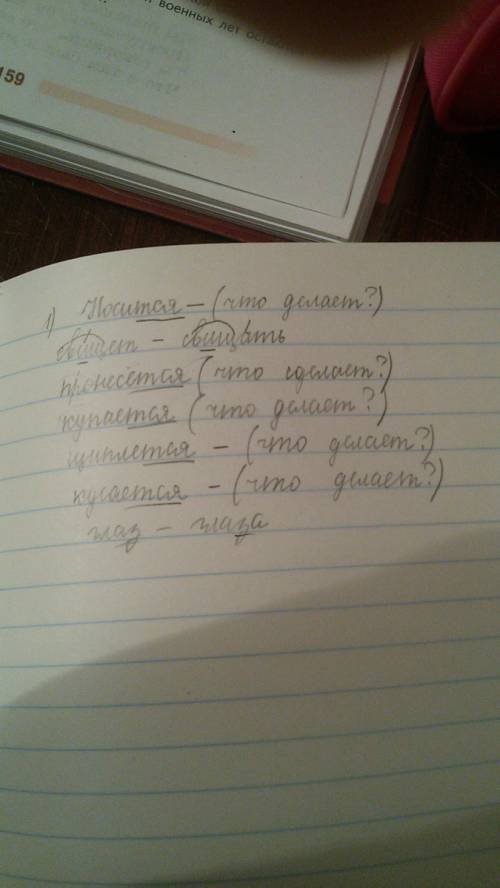 й военных лет остав
159
1) Носится – (что делает?)
свищет – свищать
пронесётся (что сделает?)
купается (что делает?)
щиплется – (что делает?)
кусается – (что делает?)
глаз – глаза